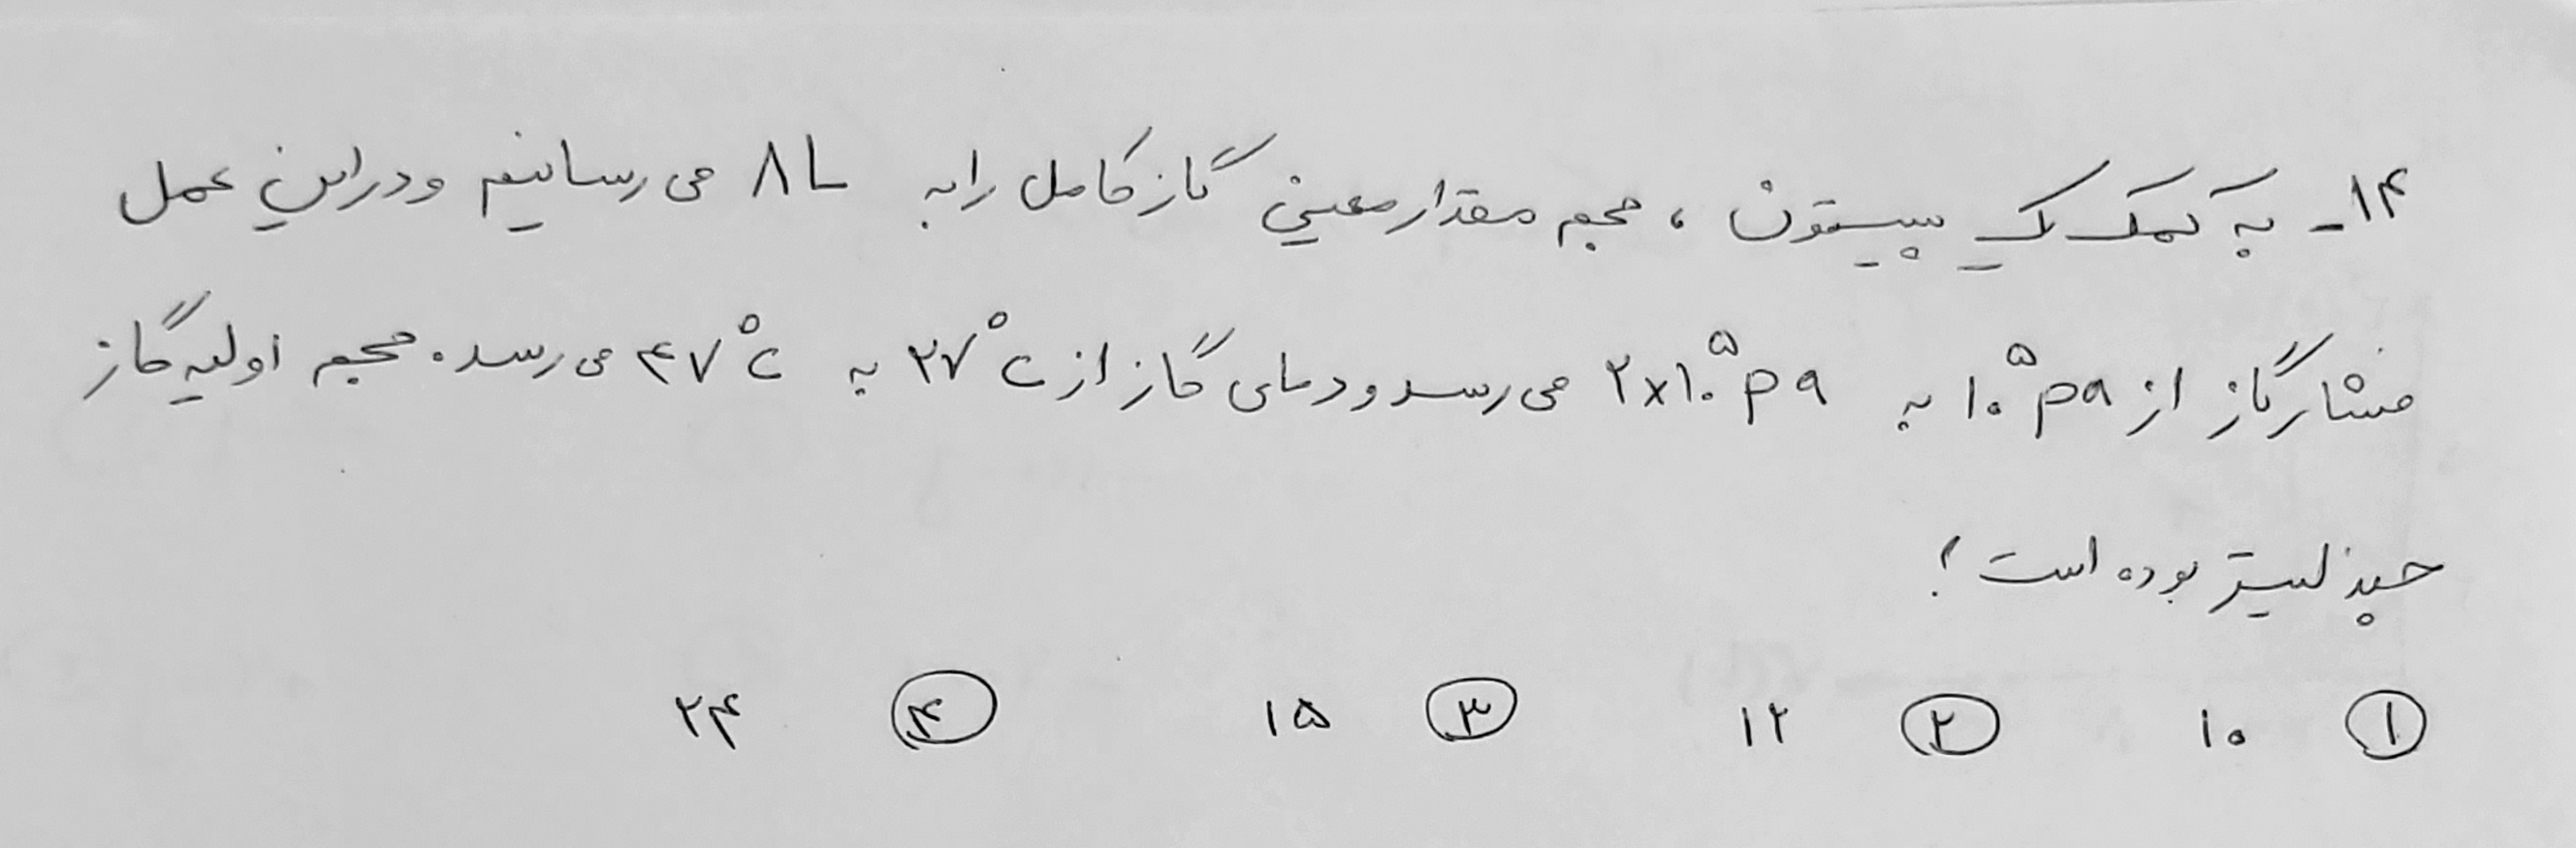 ۱۴- به کمک یک پیستون ، حجم مقدار معینی گاز کامل را به ۸L می رسانیم و در این عمل
فشار گاز از ۱۰^۵ pa به ۲×۱۰^۵ pa می رسد و دمای گاز از ۲۷°C به ۴۷°C می رسد. حجم اولیه گاز
چند لیتر بوده است؟
۱ ۱۰ ۲ ۱۲ ۳ ۱۵ ۴ ۲۴